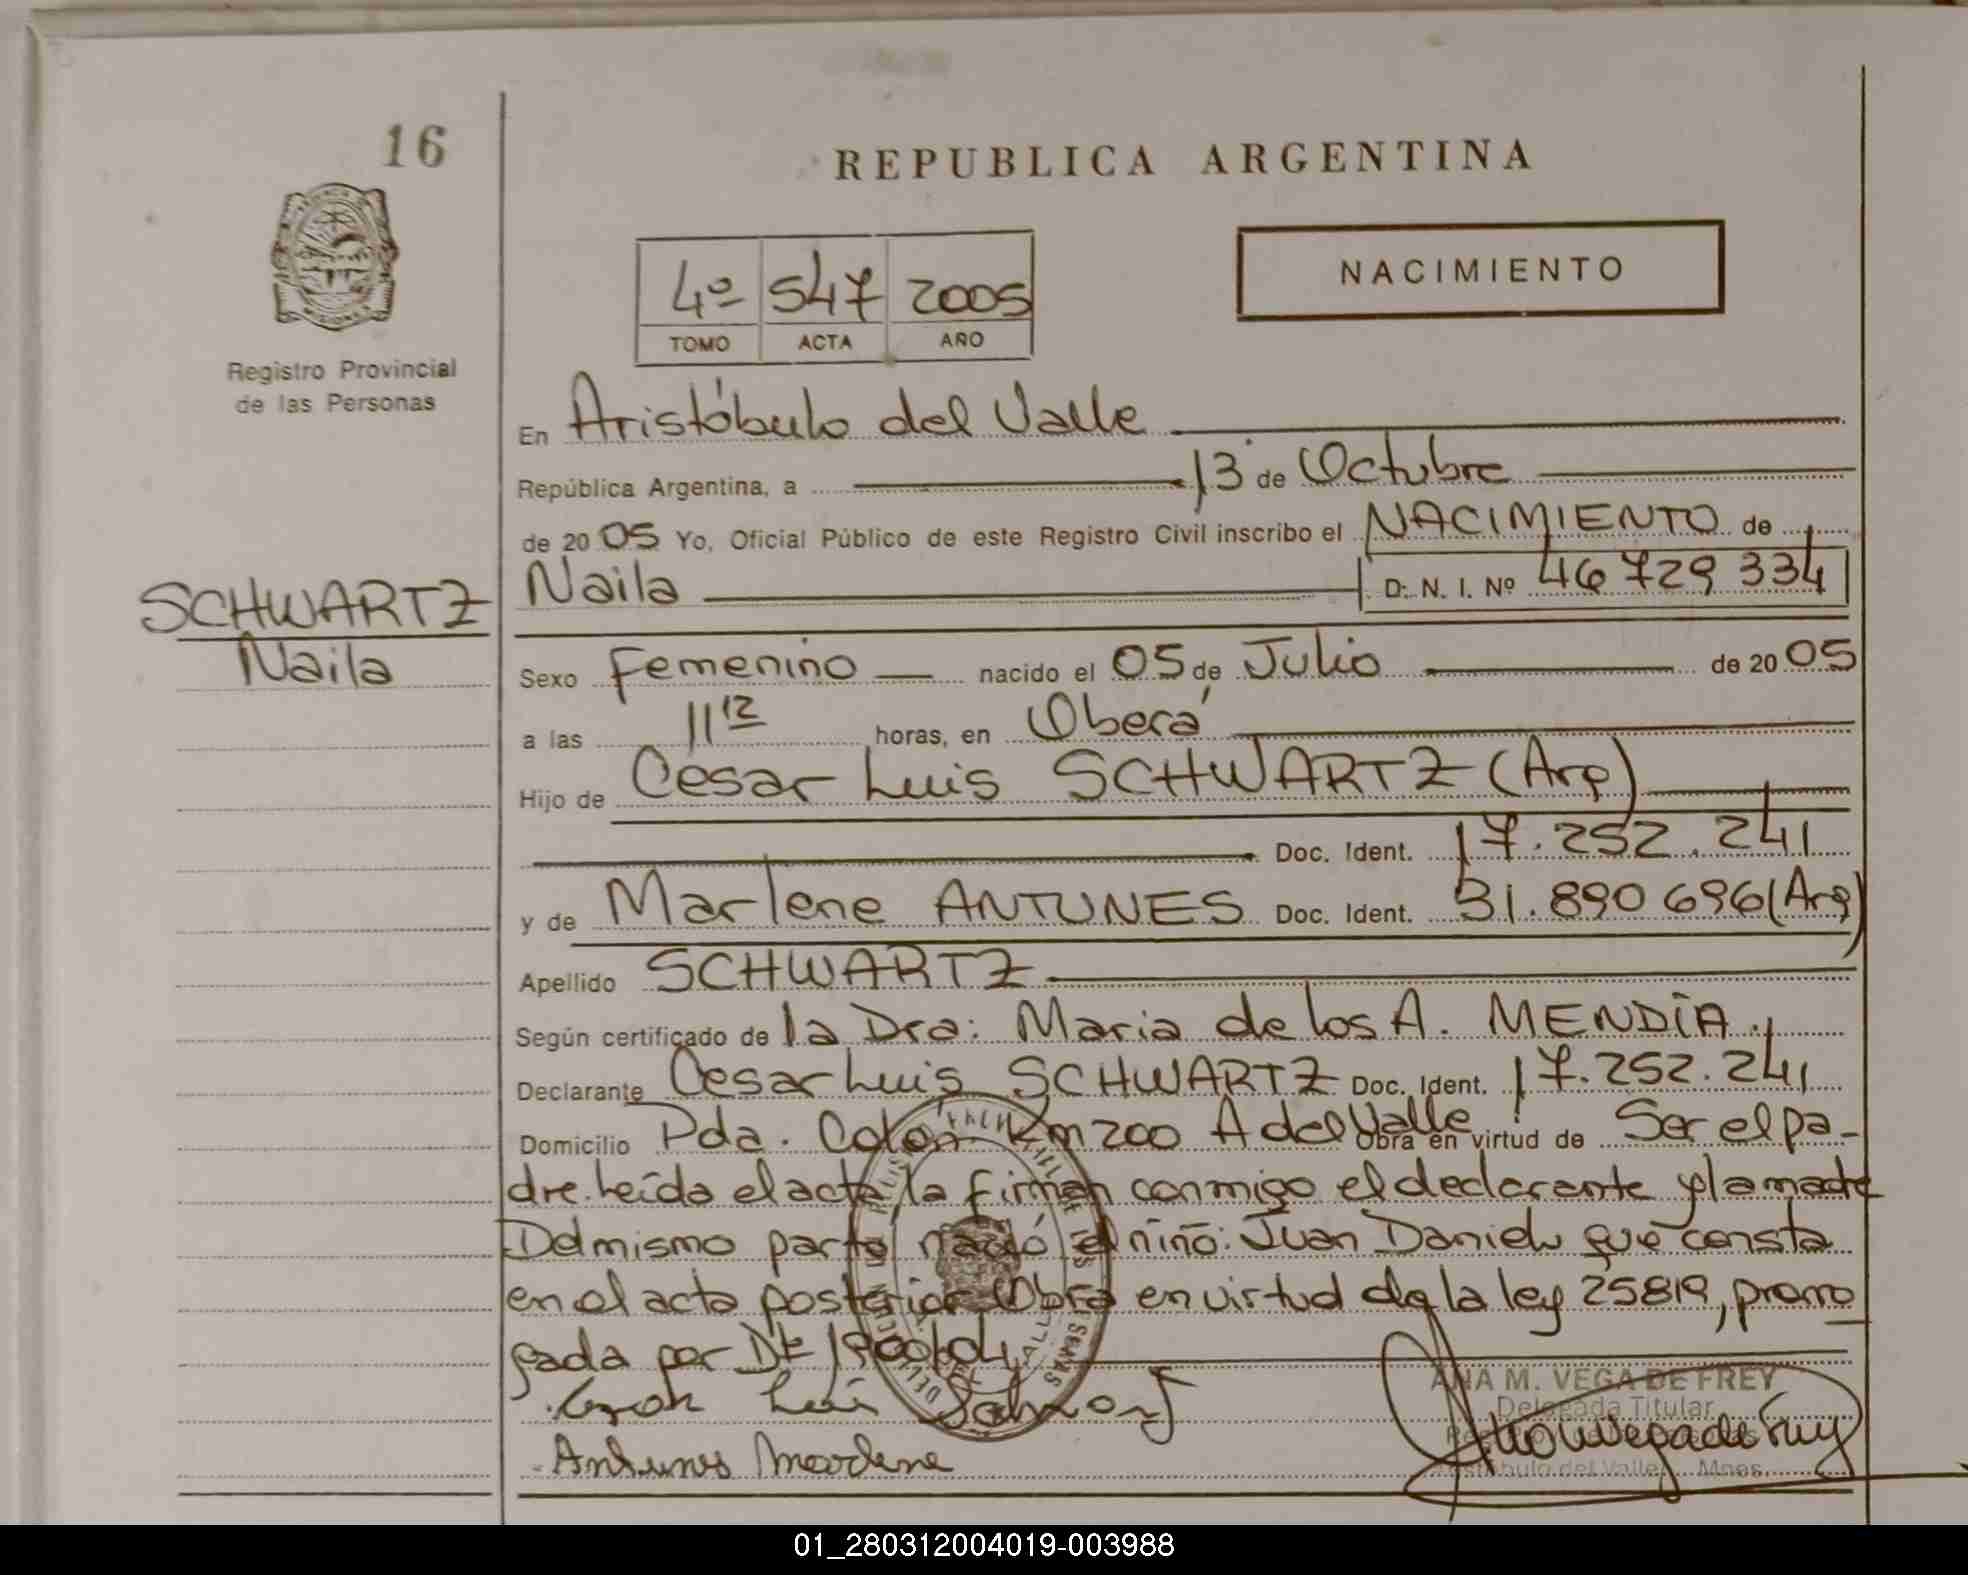 16
REPUBLICA ARGENTINA
NACIMIENTO
4º 547 2005
TOMO ACTA AÑO
MISIONES
Registro Provincial
de las Personas
En Aristóbulo del Valle
República Argentina, a 13 de Octubre
de 2005 Yo, Oficial Público de este Registro Civil inscribo el NACIMIENTO de
SCHWARTZ
Naila
Naila D. N. I. Nº 46 729 334
Sexo Femenino nacido el 05 de Julio de 2005
a las 11 12 horas, en Oberá
Hijo de Cesar Luis SCHWARTZ (Arg)
Doc. Ident. 17.252.241
y de Marlene ANTUNES Doc. Ident. 31.890 696 (Arg)
Apellido SCHWARTZ
Según certificado de la Dra: Maria de los A. MENDÍA.
Declarante Cesar Luis SCHWARTZ Doc. Ident. 17.252.241
Domicilio Pda. Colon Km 200 A del Valle Obra en virtud de Ser el pa-
dre. Leída el acta la firman conmigo el declarante y la madre
Del mismo parto nació el niño: Juan Daniel que consta
en el acta posterior Obra en virtud de la ley 25819, prorro
gada por Dt
Cesar Luis
Antunes Marlene
ANA M. VEGA DE FREY
Delegada Titular
Aristóbulo del Valle Mnes.
01_280312004019-003988